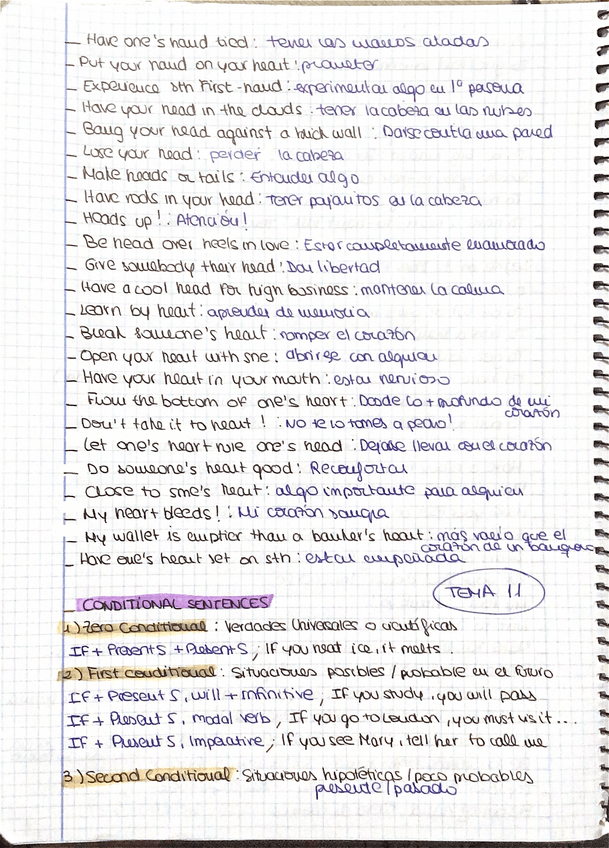 - Have one's hand tied: tener las manos atadas
- Put your hand on your heart: prometer
- Experience sth First-hand: experimentar algo en 1º persona
- Have your head in the clouds: tener la cabeza en las nubes
- Bang your head against a brick wall: Darse contra una pared
- Lose your head: perder la cabeza
- Make heads or tails: Entender algo
- Have rods in your head: Tener pajaritos en la cabeza
- Heads up!: Atención!
- Be head over heels in love: Estar completamente enamorado
- Give somebody their head: Dar libertad
- Have a cool head for high business: mantener la calma
- Learn by heart: aprender de memoria
- Break someone's heart: romper el corazón
- Open your heart with sne: abrirse con alguien
- Have your heart in your mouth: estar nervioso
- From the bottom of one's heart: Desde lo + profundo de mi
corazón
- Don't take it to heart!: ¡No te lo tomes a pecho!
- Let one's heart rule one's head: Dejarse llevar con el corazón
- Do someone's heart good: Reconfortar
- Close to sme's heart: algo importante para alguien
- My heart bleeds!: Mi corazón sangra
- My wallet is emptier than a banker's heart: más vacío que el
corazón de un banquero
- Have one's heart set on sth: estar empeñada
TEMA 11
- CONDITIONAL SENTENCES
1) Zero Conditional: Verdades Universales o científicas
If + Present S + Present S; If you heat ice, it melts.
2) First conditional: Situaciones posibles / probable en el futuro
If + Present S, will + infinitive; If you study, you will pass
If + Present S, modal verb; If you go to London, you must visit...
If + Present S, Imperative; If you see Mary, tell her to call me
3) Second Conditional: Situaciones hipotéticas / poco probables
presente/pasado